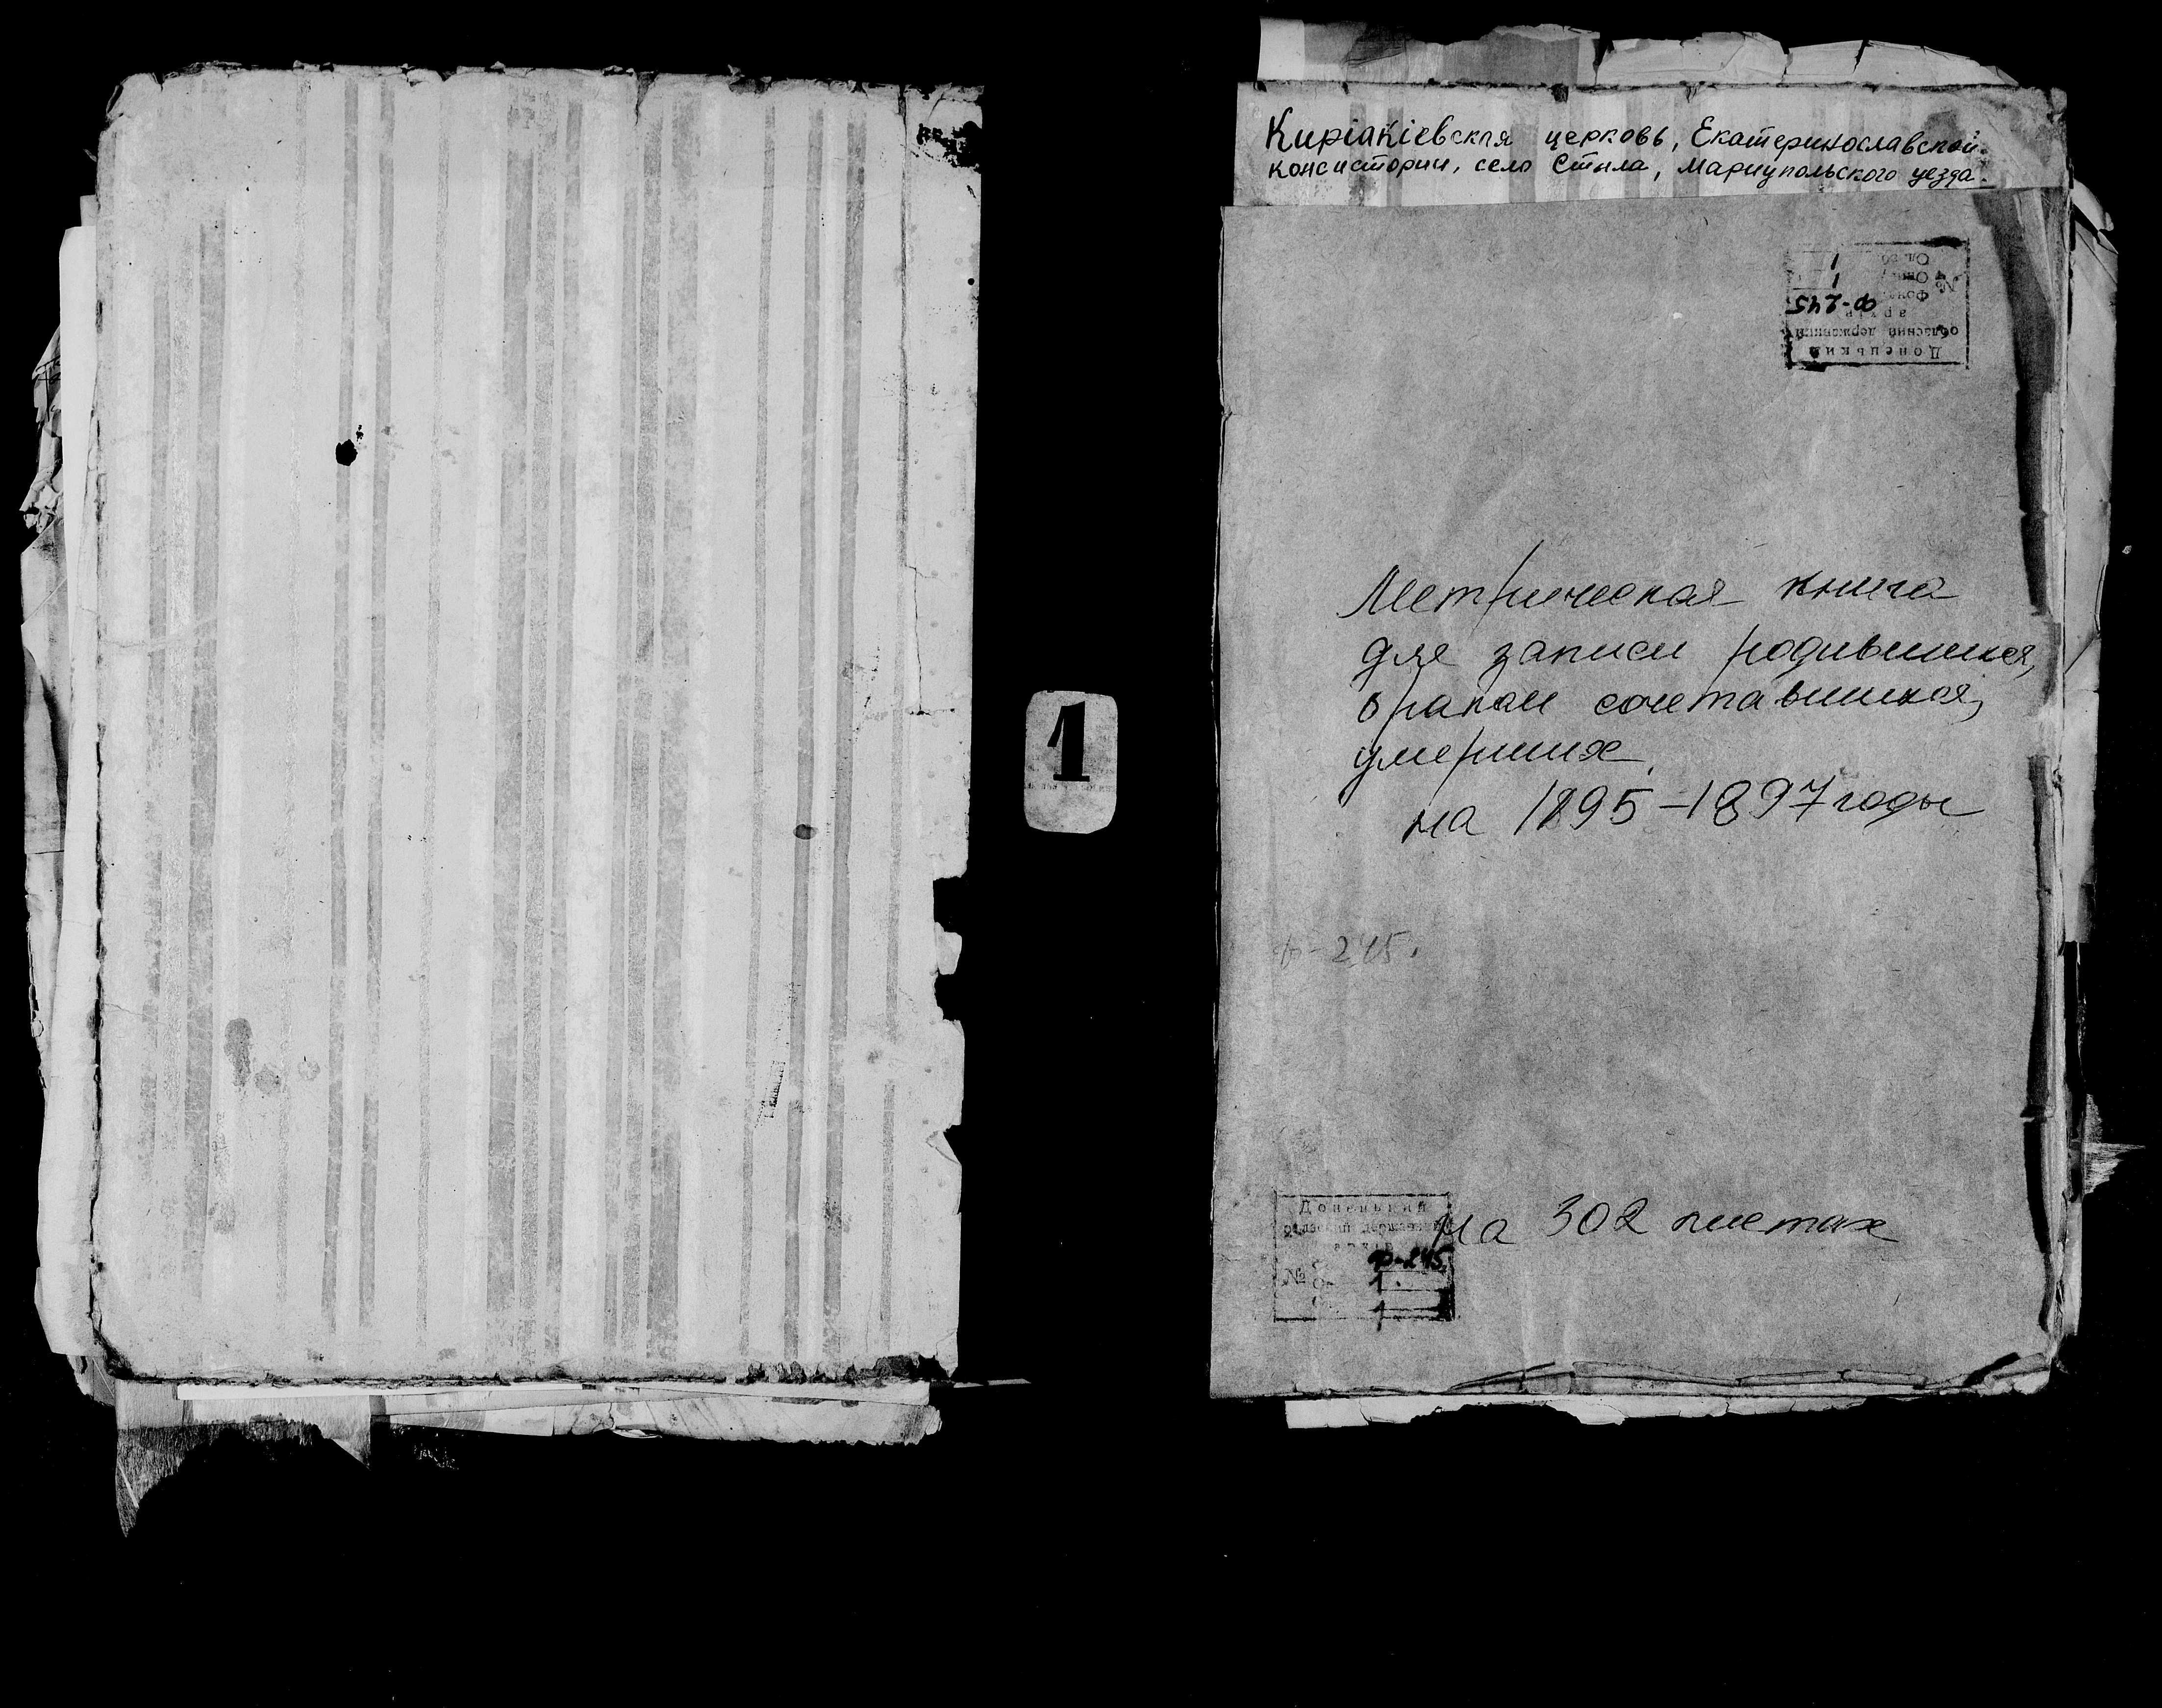 1
Киріакіевская церковь, Екатеринославской
консистории, село Стыла, Мариупольского уезда.
Донецький
обласний державний
архів
№ Фонд Ф-245
Опис 1
1
Метрическая книга
для записи родившихся,
браком сочетавшихся,
умерших
на 1895-1897 годы
Ф-245.
на 302 листах
Донецький
обласний державний
архів
Ф-245
№ 1.
1